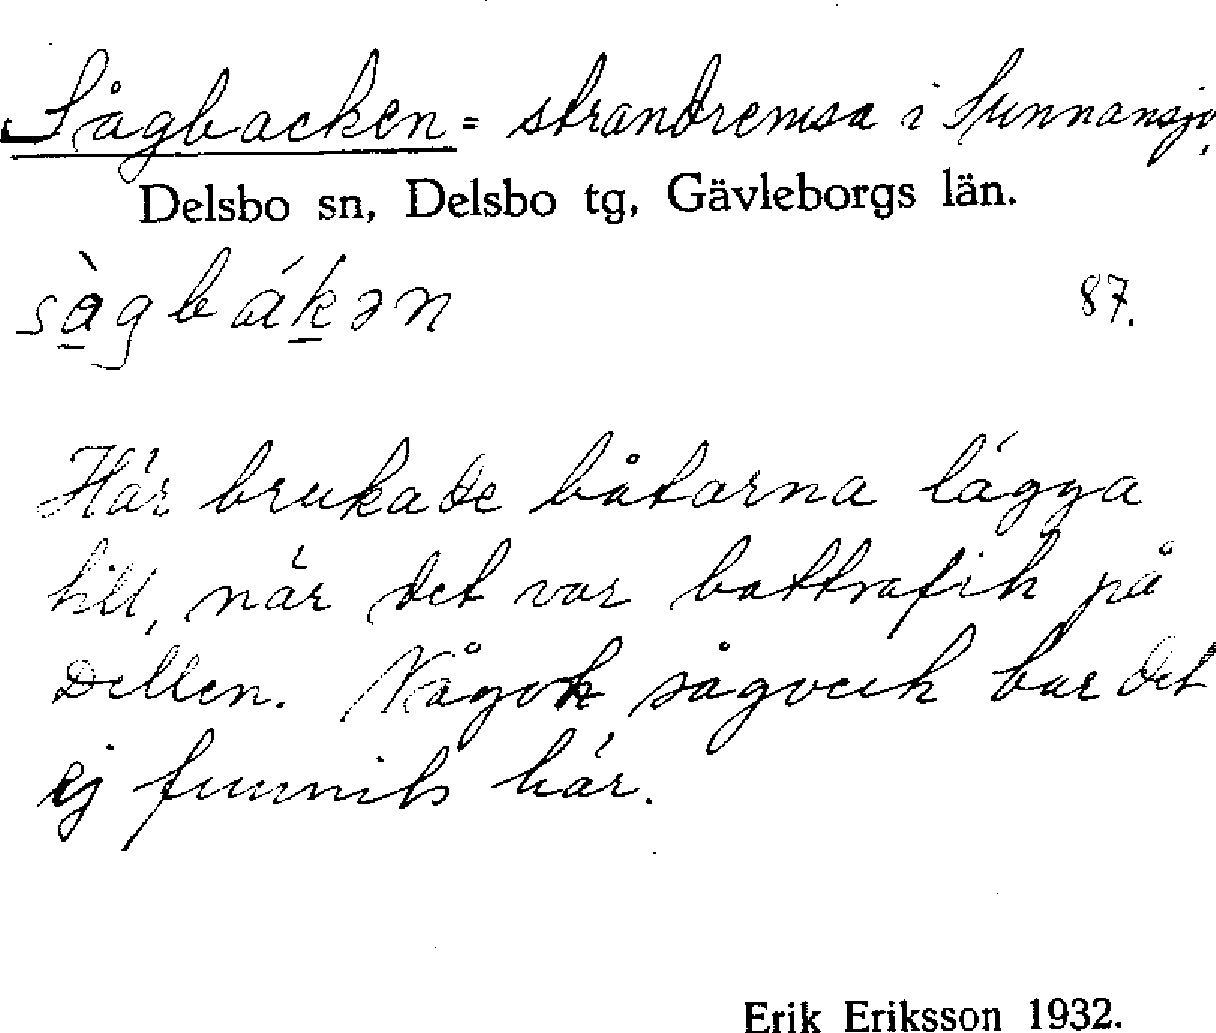 Sågbacken = strandremsa i Sunnansjö,
Delsbo sn, Delsbo tg, Gävleborgs län.
sàgbákən 87.
Här brukade båtarna lägga
till, när det var båttrafik på
Dellen. Något sågverk har det
ej funnits här.
Erik Eriksson 1932.